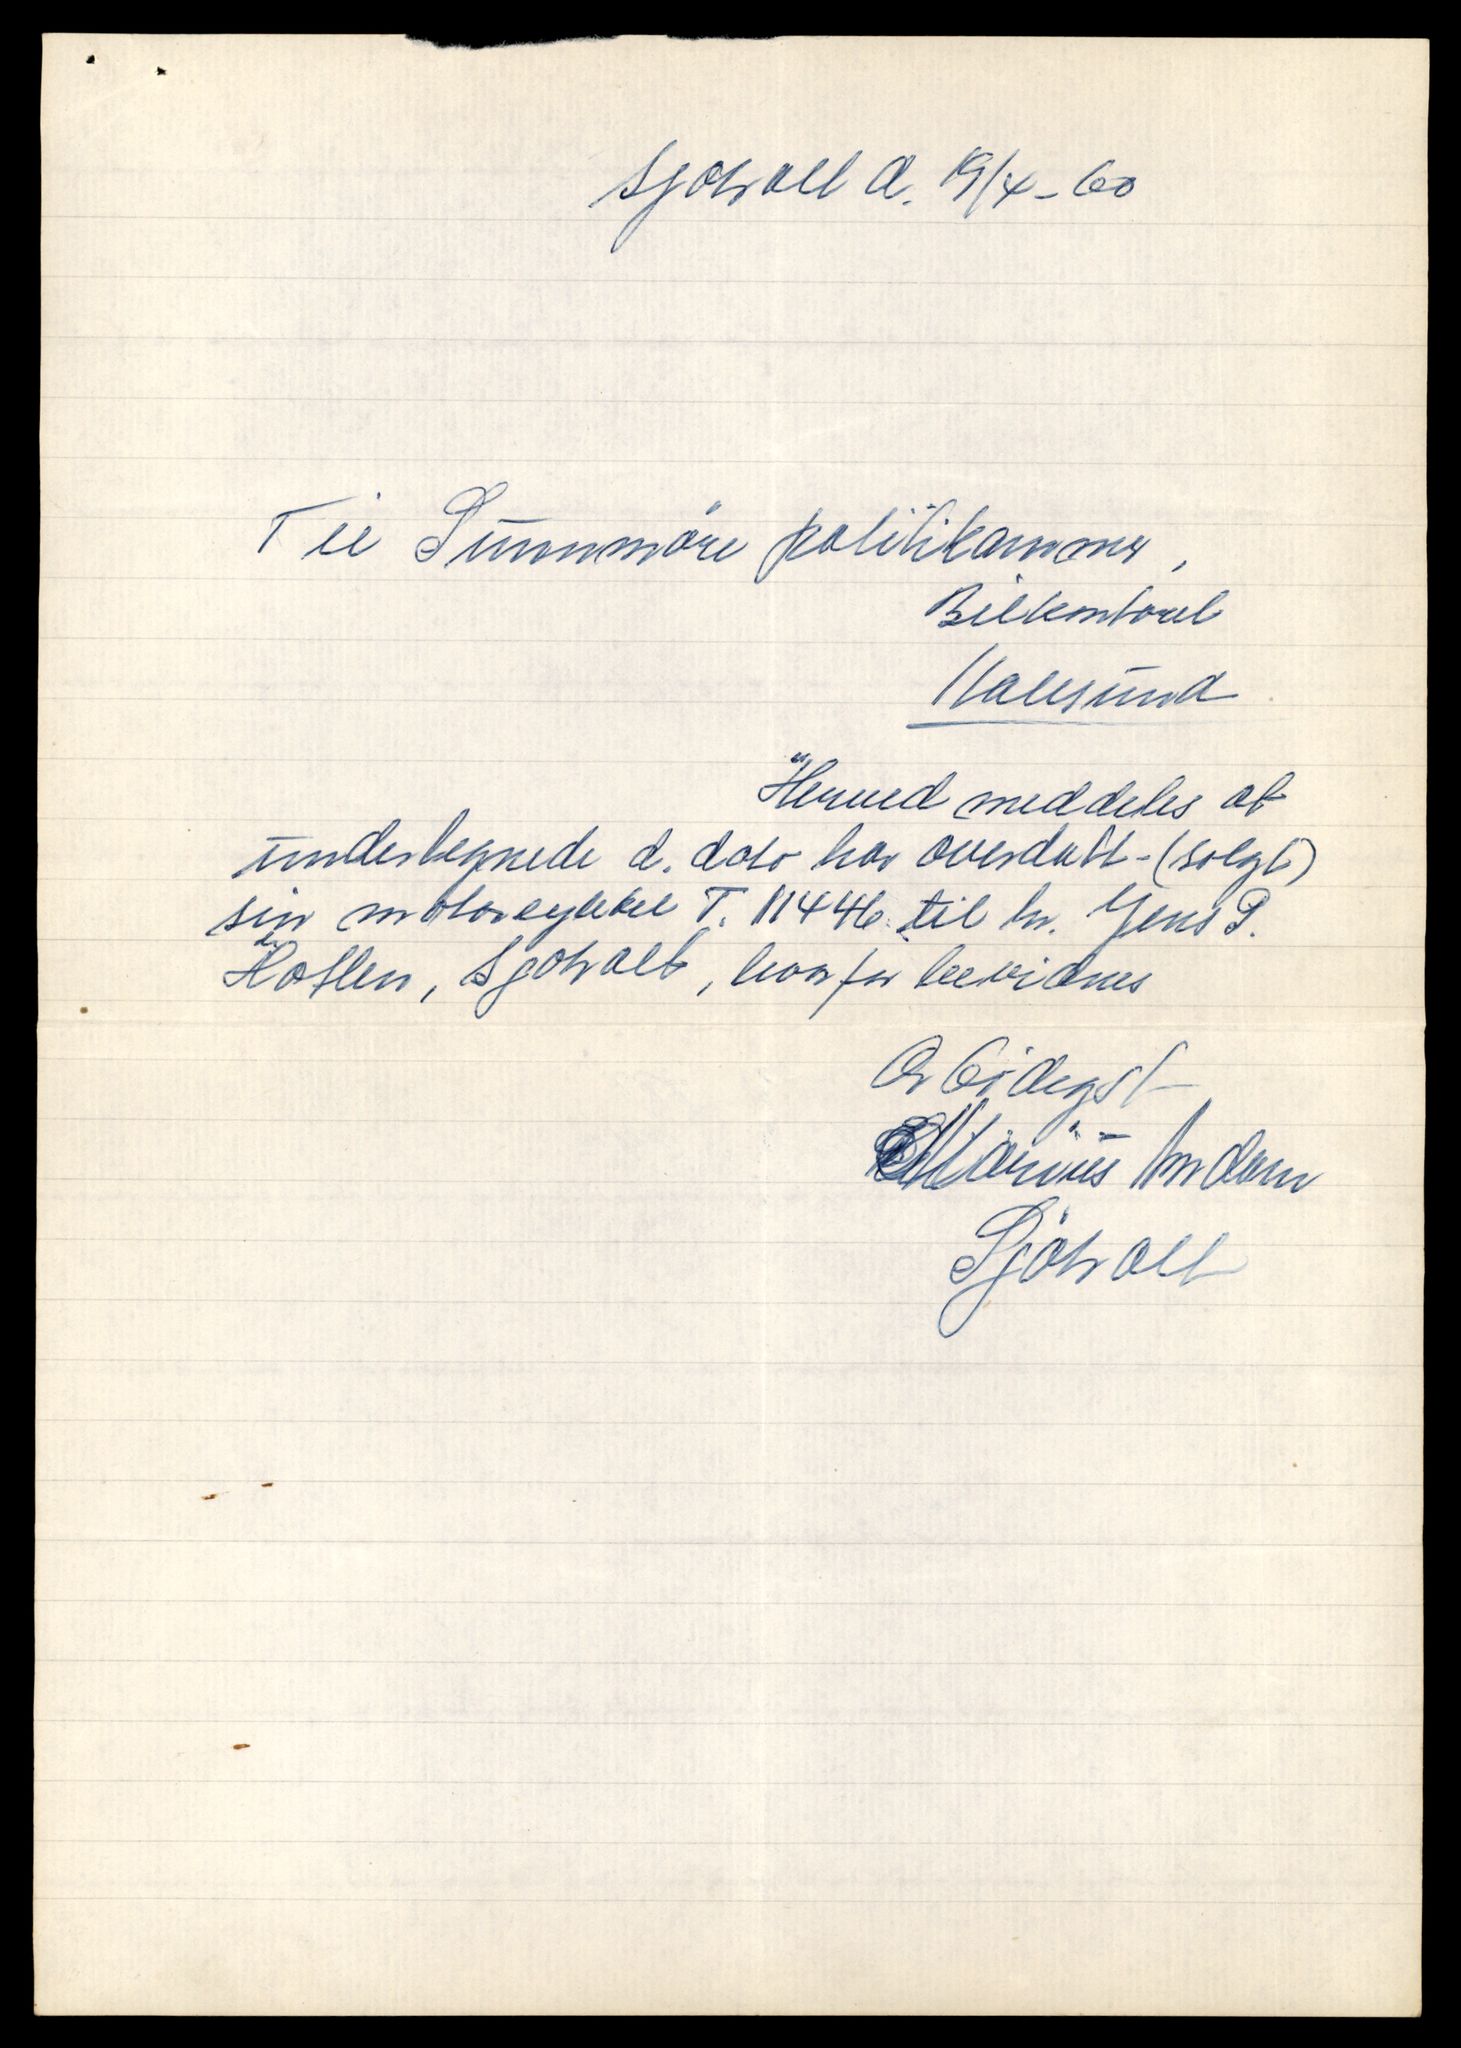 Sjøholt d. 19/4-60
Til Sunnmöre politikammer,
Bilkontoret
Aalesund
Herved meddeles at
undertegnede d. dato har overdatt-(solgt)
sin motorsykkel T. 11446 til hr. Jens P.
Hoflen, Sjøholt, hvorfor bevidnes
Arbödigst
Marius Amdam
Sjöholt